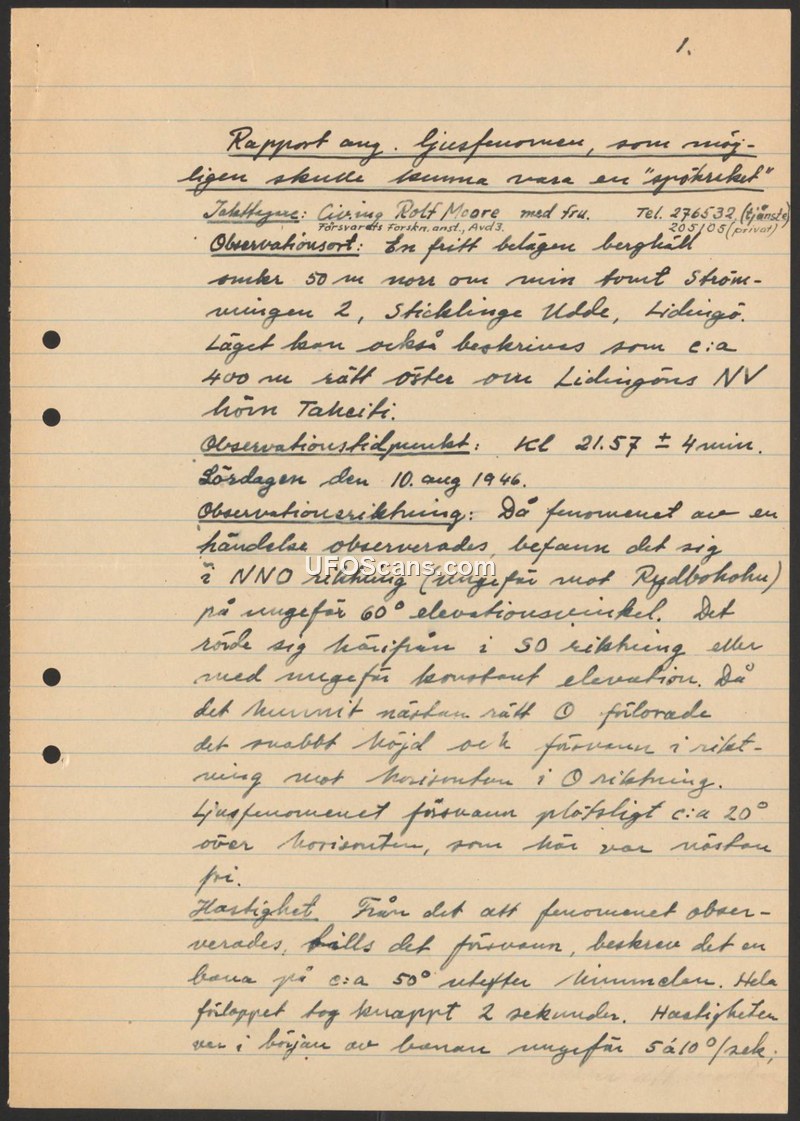 1.
Rapport ang. ljusfenomen, som möj-
ligen skulle kunna vara en "spökraket"
Iakttagare: Civing Rolf Moore med fru. Tel. 276532 (tjänste)
Försvarets Forskn. anst., Avd 3. 205105 (privat)
Observationsort: En fritt belägen berghäll
omkr 50 m norr om min tomt Ström-
ningen 2, Sticklinge Udde, Lidingö.
Läget kan också beskrivas som c:a
400 m rätt öster om Lidingöns NV
hörn Taheiti.
Observationstidpunkt: Kl 21.57 ± 4 min.
Lördagen den 10. aug 1946.
Observationsriktning: Då fenomenet av en
händelse observerades, befann det sig
i NNO riktning (ungefär mot Rydboholm)
på ungefär 60° elevationsvinkel. Det
rörde sig härifrån i SO riktning eller
med ungefär konstant elevation. Då
det hunnit nästan rätt O förlorade
det snabbt höjd och försvann i rikt-
ning mot horisonten i O riktning.
Ljusfenomenet försvann plötsligt c:a 20°
över horisonten, som här var nästan
fri.
Hastighet Från det att fenomenet obser-
verades, tills det försvann, beskrev det en
bana på c:a 50° utefter himmelen. Hela
förloppet tog knappt 2 sekunder. Hastigheten
var i början av banan ungefär 5 á 10°/sek;
UFOScans.com